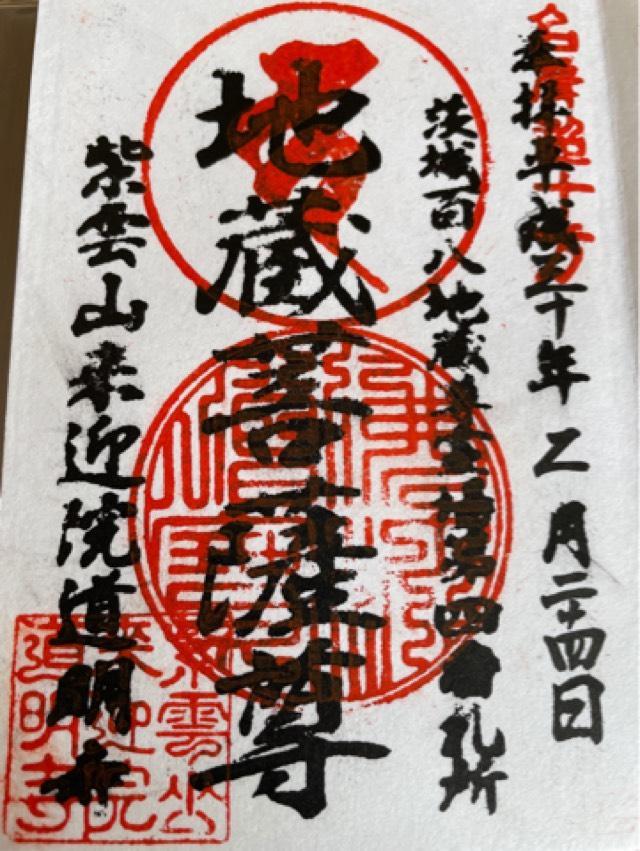 奉拝平成三十年二月二十四日
茨城百八地蔵尊霊場第四番札所
地蔵菩薩尊
紫雲山来迎院道明寺
紫雲山
来迎院
道明寺